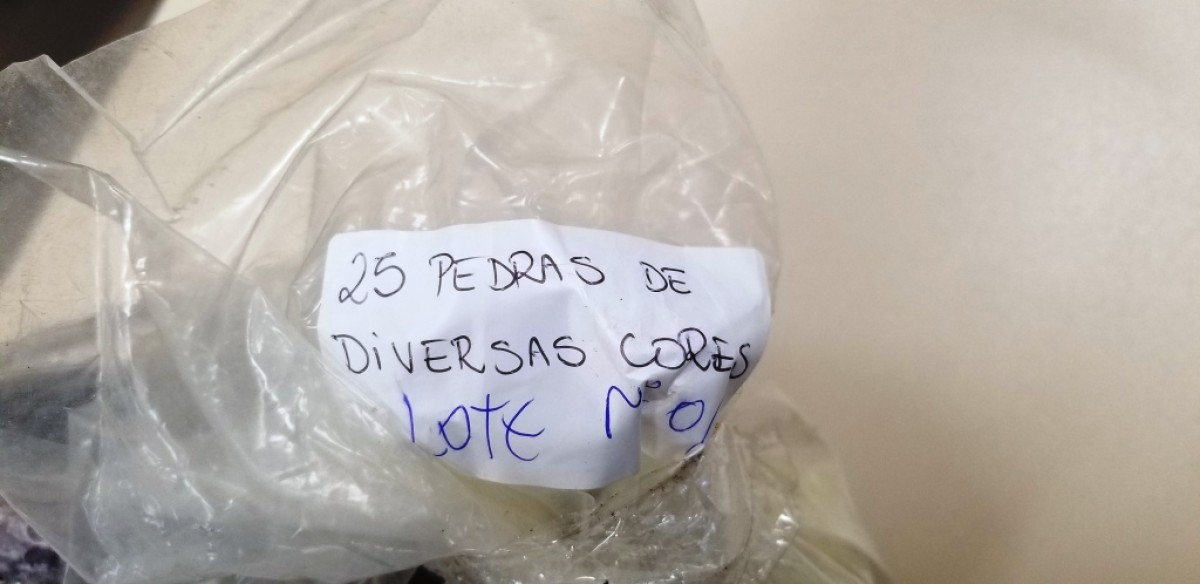 25 PEDRAS DE
DIVERSAS CORES
LOTE Nº